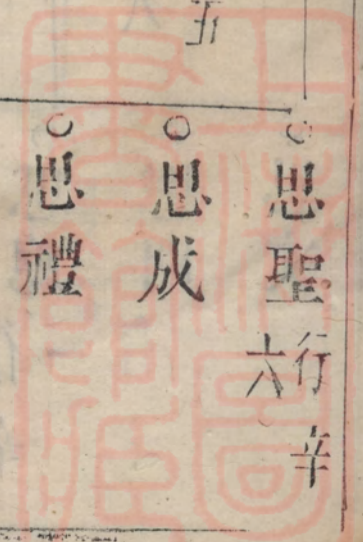 五
○思聖行辛六
○思成
○思禮